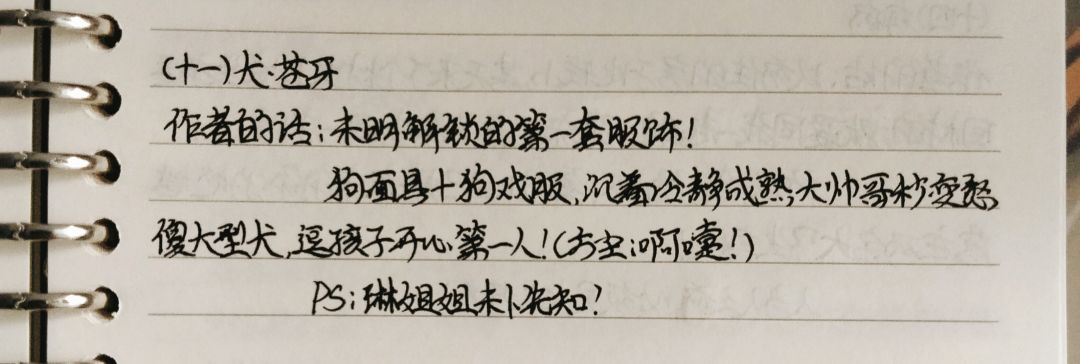 (十一)犬·苍牙
作者的话:未明解锁的第一套服饰!
狗面具+狗戏服,沉着冷静成熟大帅哥秒变憨
傻大型犬,逗孩子开心第一人!(方主:啊嚏!)
PS:琳姐姐未卜先知?